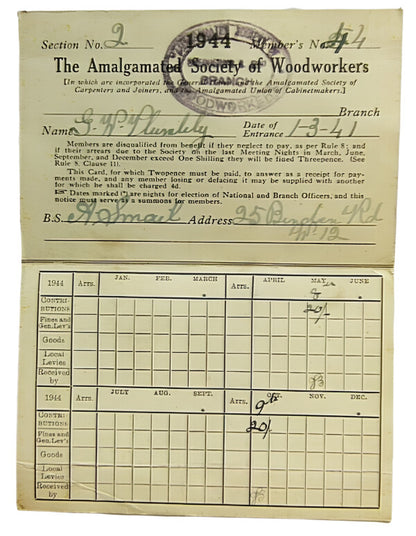 Section No. 2 1944 Member's No. 44
The Amalgamated Society of Woodworkers
[In which are incorporated the General Union and the Amalgamated Society of
Carpenters and Joiners, and the Amalgamated Union of Cabinetmakers.]
BRANCH
WOODWORKERS
Branch
Name G. W. Date of Entrance 1-3-41
Members are disqualified from benefit if they neglect to pay, as per Rule 8; and
if their arrears due to the Society on the last Meeting Nights in March, June,
September, and December exceed One Shilling they will be fined Threepence. (See
Rule 8, Clause 11).
This Card, for which Twopence must be paid, to answer as a receipt for pay-
ments made, and any member losing or defacing it may be supplied with another
for which he shall be charged 4d.
Dates marked (*) are nights for election of National and Branch Officers, and this
notice must serve as a summons for members.
B.S. A. Smail Address 25 Rd
W. 12
1944 Arrs. JAN. FEB. MARCH Arrs. APRIL MAY JUNE
8
CONTRIBUTIONS 20/-
Fines and Gen. Lev's
Goods
Local Levies
Received by
1944 Arrs. JULY AUG. SEPT. Arrs. OCT. NOV. DEC.
9th
CONTRIBUTIONS 20/-
Fines and Gen. Lev's
Goods
Local Levies
Received by